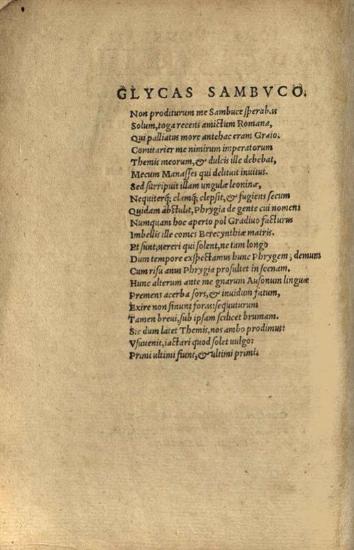 GLYCAS SAMBVCO.
Non proditurum me Sambuce sperabas
Solum, toga recens amictum Romana,
Qui palliatus more antehac eram Graio.
Comitarier me nimirum imperatorum
Themis meorum, & dulcis ille debebat,
Mecum Manasses qui delituit inuius.
Sed surripuit illam ungulæ leoninæ,
Nequiterq; clamq; clepsit, & fugiens secum
Quidam abstulit, Phrygia de gente cui nomen:
Numquam hoc aperto pol Gradiuo facturus
Imbellis ille comes Berecynthiæ matris.
Et sunt, uereri qui solent, ne tam longo
Dum tempore exspectamus hunc Phrygem, demum
Cum risu anus Phrygia prosultet in scenam.
Hunc alterum ante me gnarum Ausonum linguæ
Prement acerba sors, & inuidum fatum,
Exire non sinunt foras: sequuturum
Tamen breui, sub ipsam scilicet brumam.
Sic dum latet Themis, nos ambo prodimus:
Vsuuenit, iactari quod solet uulgo:
Primi ultimi fiunt, & ultimi primi.